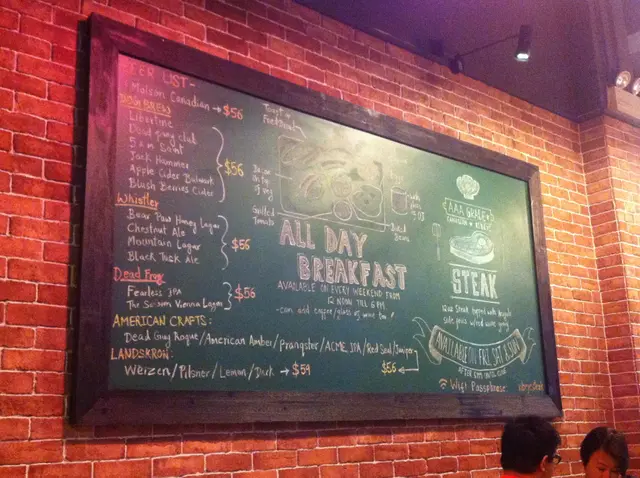 BEER LIST
Molson Canadian → $56
Libertine
Dead pony club
5 a.m Saint
Jack Hammer
Apple Cider Bulwark
Blush Berries Cider
$56
Whistler
Bear Paw Honey Lager
Chestnut Ale
Mountain Lager
Black Tusk Ale
$56
Dead Frog
Fearless IPA
The Vienna Lager
$56
AMERICAN CRAFTS:
Dead Guy Rogue/American Amber/Prangster/ACME IPA/Red Seal/
$56
LANDSKRON:
Weizen/Pilsner/Lemon/Dark → $59
Toast +
Grilled
Tomato
Baked
Beans
ALL DAY
BREAKFAST
AVAILABLE ON EVERY WEEKEND FROM
12 NOON TILL 6 PM
- can add coffee/glass of wine too!
AAA GRADE
STEAK
12oz steak topped with
AVAILABLE ON FRI, SAT & SUN
AFTER 6PM UNTIL
Wifi Password: